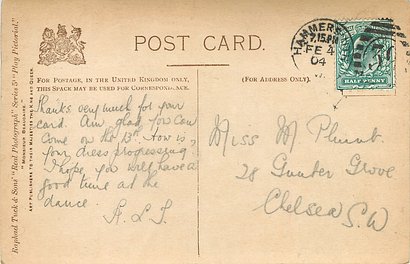 POST CARD.
FOR POSTAGE, IN THE UNITED KINGDOM ONLY,
THIS SPACE MAY BE USED FOR CORRESPONDENCE.
(FOR ADDRESS ONLY.)
HAMMERS
7.15 PM
FE 4
04
HALF PENNY
Thanks very much for your
card. Am glad you can
come on the 13th. How is
your dress progressing
I hope you will have a
good time at the
dance.
Miss M Plunt.
28 Gunter Grove
Chelsea S.W
Raphael Tuck & Sons' "Real Photograph" Series "Play Pictorial."
ART PUBLISHERS TO THEIR MAJESTIES THE KING AND QUEEN.